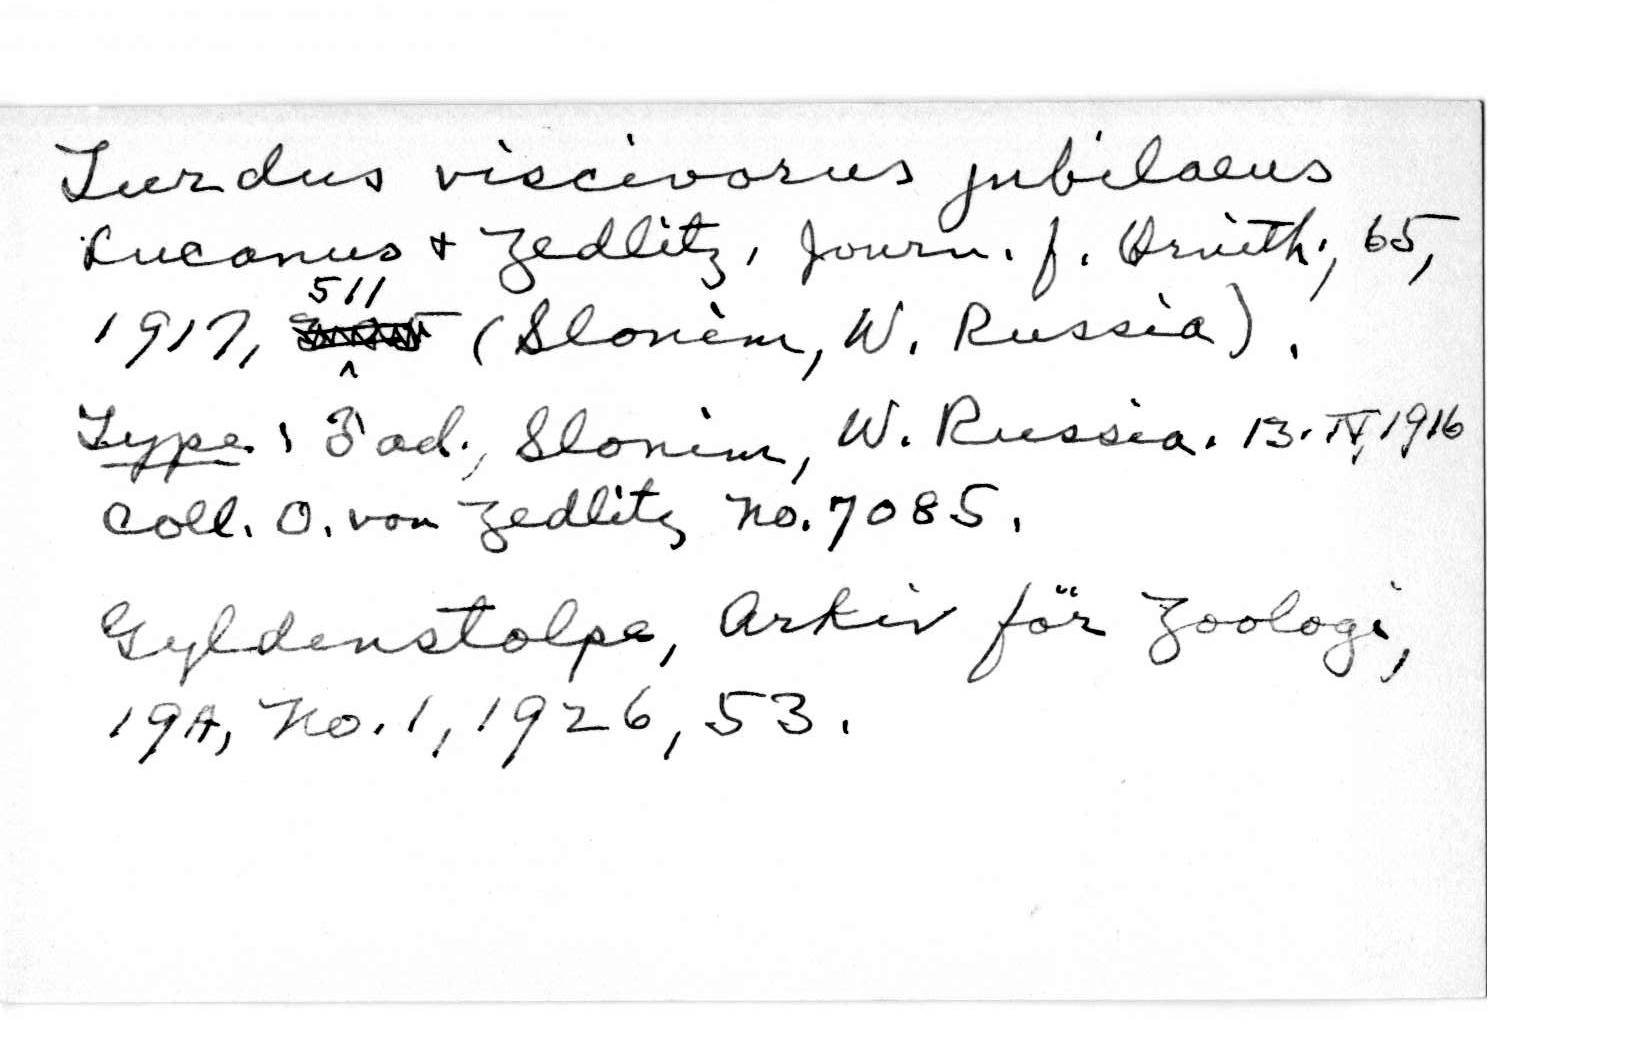 Turdus viscivorus jubilaeus
Lucanus + Zedlitz, Journ. f. Ornith., 65,
1917, 511 (Slonim, W. Russia).
Type: ♂ ad., Slonim, W. Russia. 13. IV, 1916
Coll. O. von Zedlitz No. 7085.
Gyldenstolpe, Arkiv för Zoologi,
19A, No. 1, 1926, 53.